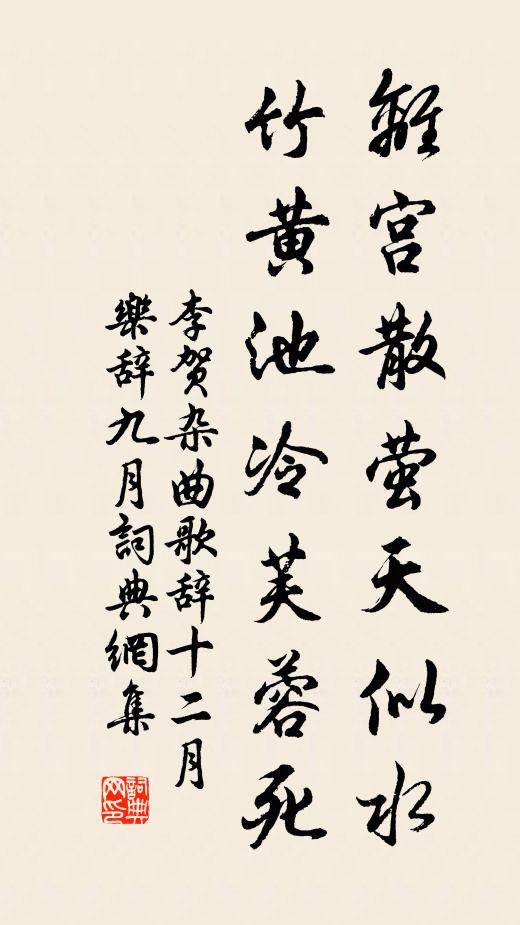 離宮散萤天似水
竹黄池冷芙蓉死
李贺杂曲歌辞十二月
樂辞九月詞典網集
詞典網印